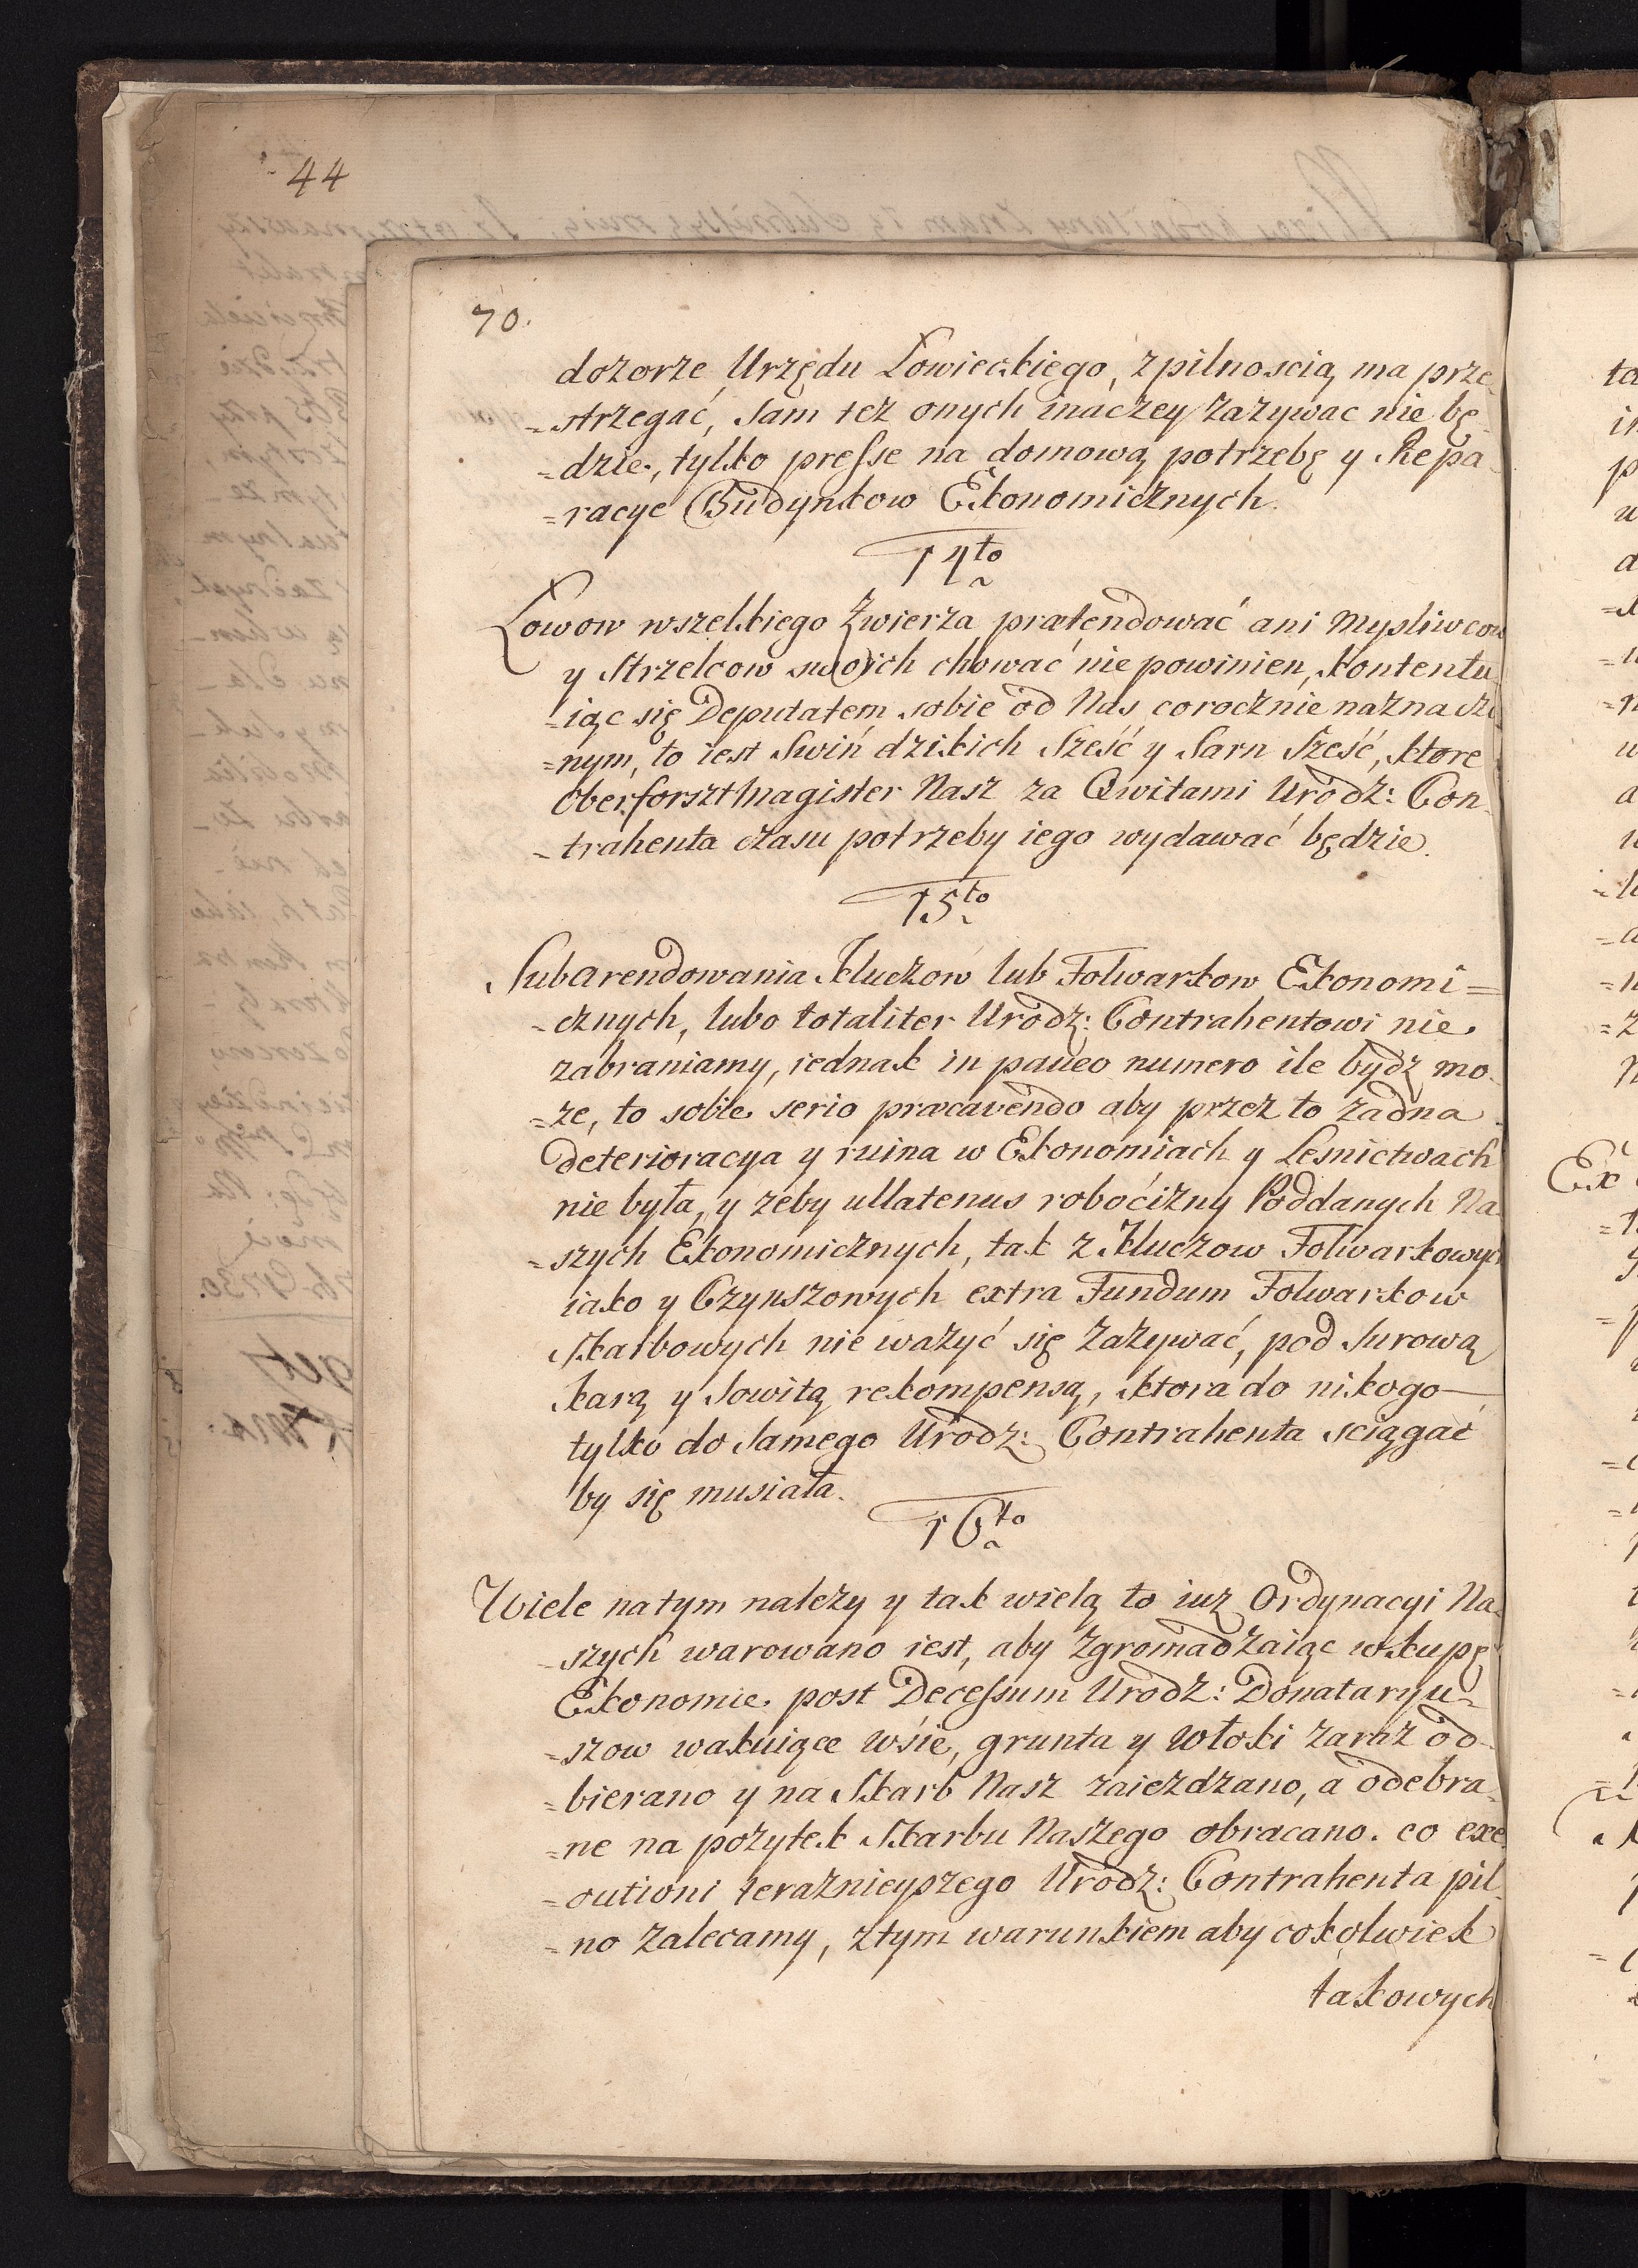 44
70.
dozorze Urzędu Łowieckiego, z pilnoscią ma prze
-strzegać, sam też onych inaczey zazywac nie bę
-dzie, tylko presse na domową potrzebę y Repa
=racye Budynkow Ekonomicznych.
14to
Łowow wszelkiego Zwierza prætendować ani Mysliwcow
y Strzelcow swoich chować nie powinien, kontentu
-iąc się Deputatem sobie od Nas corocznie naznaczo
=nym, to iest Swiń dzikich Sześć y Sarn Sześć, ktore
Oberforsztmagister Nasz za Qwitami Urodz: Con
-trahenta czasu potrzeby iego wydawać będzie.
15to
Subarendowania Kluczow lub Folwarkow Ekonomi=
-cznych, lubo totaliter Urodz: Contrahentowi nie
zabraniamy, iednak in pauco numero ile bydz mo
=ze, to sobie serio præcavendo aby przez to zadna
deterioracya y ruina w Ekonomiach y Lesnictwach
nie była, y zeby ullatenus robocizny Poddanych Na
-szych Ekonomicznych, tak z Kluczow Folwarkowych
iako y Czynszowych extra Fundum Folwarkow
Skarbowych nie ważyć się Zazywać, pod Surową
karą y Sowitą rekompensą, ktora do nikogo
tylko do Samego Urodz: Contrahenta sciągać
by się musiała.
16to
Wiele natym nalezy y tak wielą to iuz Ordynacyi Na
-szych warowano iest, aby Zgromadzaiąc w kupę
Ekonomie post Decessum Urodz: Donataryu
-szow wakuiące wsie, grunta y Włoki zaraz od
-bierano y na Skarb Nasz zaiezdzano, a odebra
=ne na pozytek Skarbu Naszego obracano. co exe
-cutioni teraznieyszego Urodz: Contrahenta pil
-no Zalecamy, z tym warunkiem aby cokolwiek
takowych